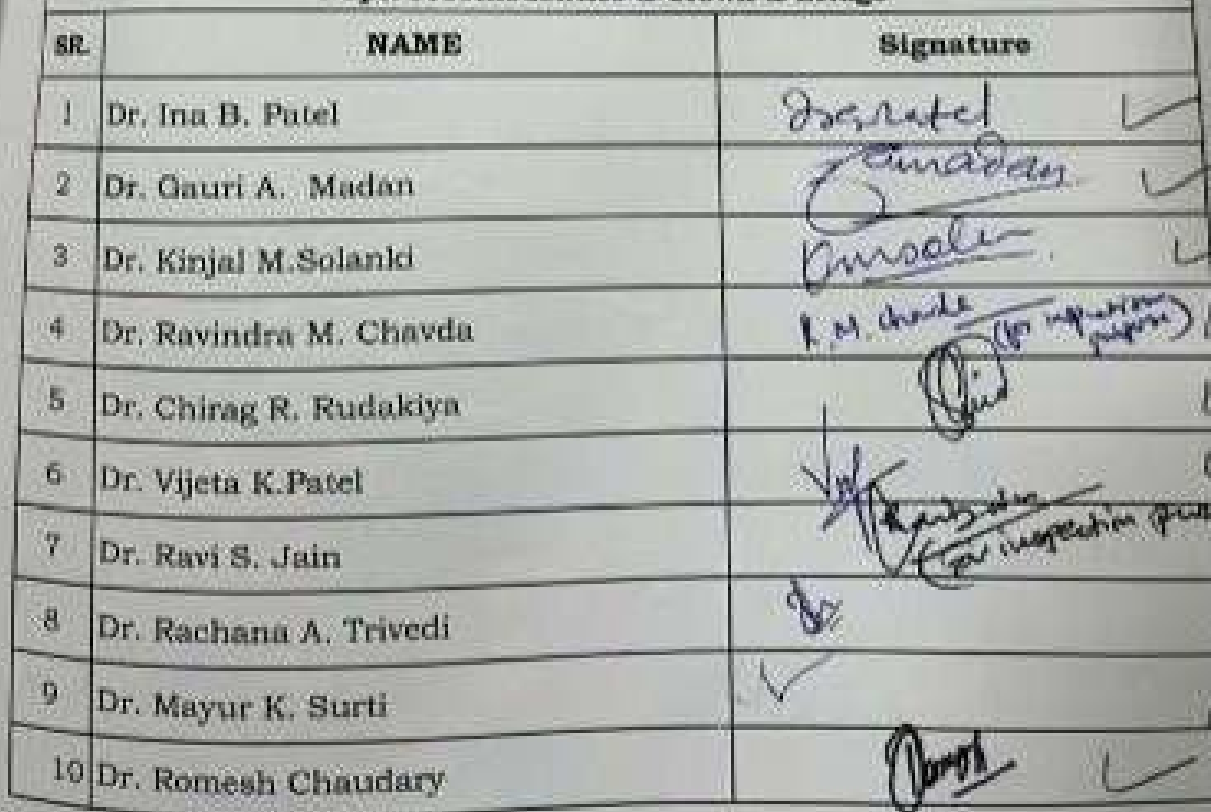 SR. NAME Signature
1 Dr. Ina B. Patel
2 Dr. Gauri A. Madan
3 Dr. Kinjal M.Solanki
4 Dr. Ravindra M. Chavda R. M. Chavda (for inspection purpose)
5 Dr. Chirag R. Rudakiya
6 Dr. Vijeta K.Patel
7 Dr. Ravi S. Jain (for inspection
8 Dr. Rachana A. Trivedi
9 Dr. Mayur K. Surti
10 Dr. Romesh Chaudary